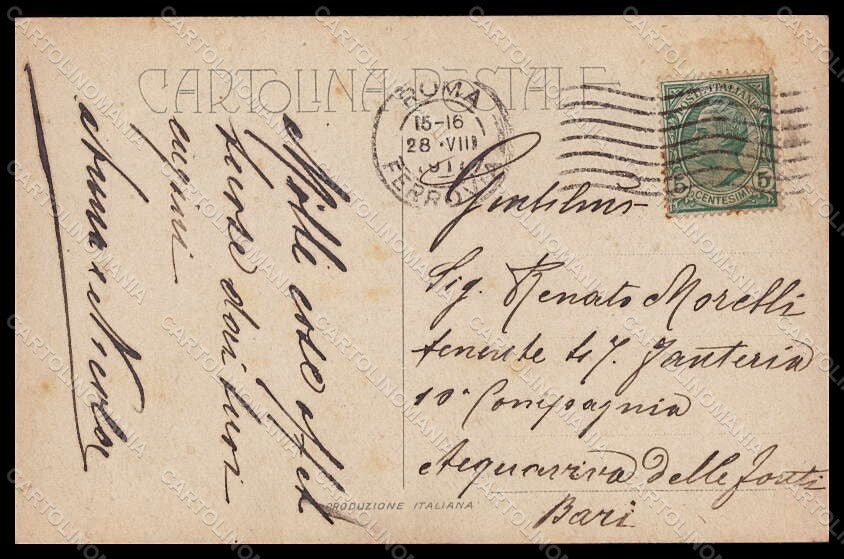 CARTOLINA POSTALE
ROMA
15-16
28 ·VIII
FERROVIA
POSTE ITALIANE
5 CENTESIMI 5
Gentilmo
Sig. Renato Morelli
tenente
Fanteria
10ª Compagnia
Acquaviva delle Fonti
Bari
Mille cose affet
tuose dai tuoi
cugini
PRODUZIONE ITALIANA
CARTOLINOMANIA